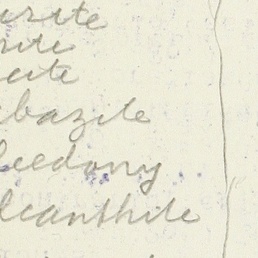 urite
rite
cite
bazite
leedony
lcanthite